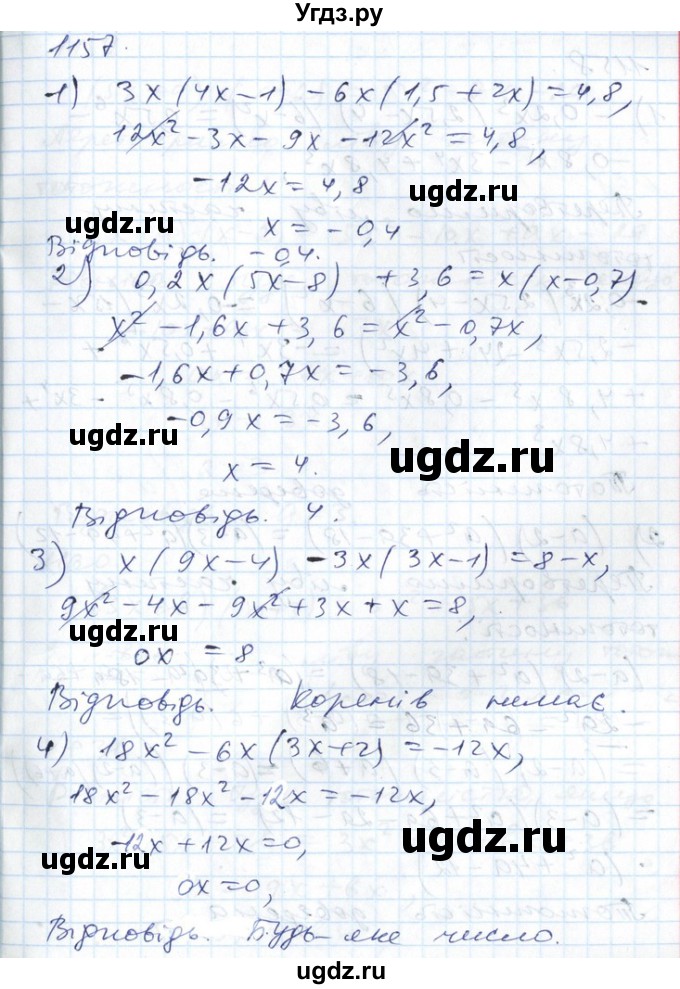 Угдз.ру
1157.
1) 3x(4x-1) - 6x(1,5+2x) = 4,8,
12x² - 3x - 9x - 12x² = 4,8,
-12x = 4,8
ugdz.ru ugdz.ru
x = -0,4
Відповідь. -0,4.
2) 0,2x(5x-8) + 3,6 = x(x-0,7).
x² - 1,6x + 3,6 = x² - 0,7x,
-1,6x + 0,7x = -3,6,
-0,9x = -3,6,
ugdz.ru ugdz.ru
x = 4.
Відповідь. 4.
3) x(9x-4) - 3x(3x-1) = 8-x,
9x² - 4x - 9x² + 3x + x = 8,
ugdz.ru
0x = 8.
Відповідь. Коренів немає.
4) 18x² - 6x(3x+2) = -12x,
18x² - 18x² - 12x = -12x,
-12x + 12x = 0,
ugdz.ru ugdz.ru
0x = 0,
Відповідь. Будь-яке число.
ugdz.ru